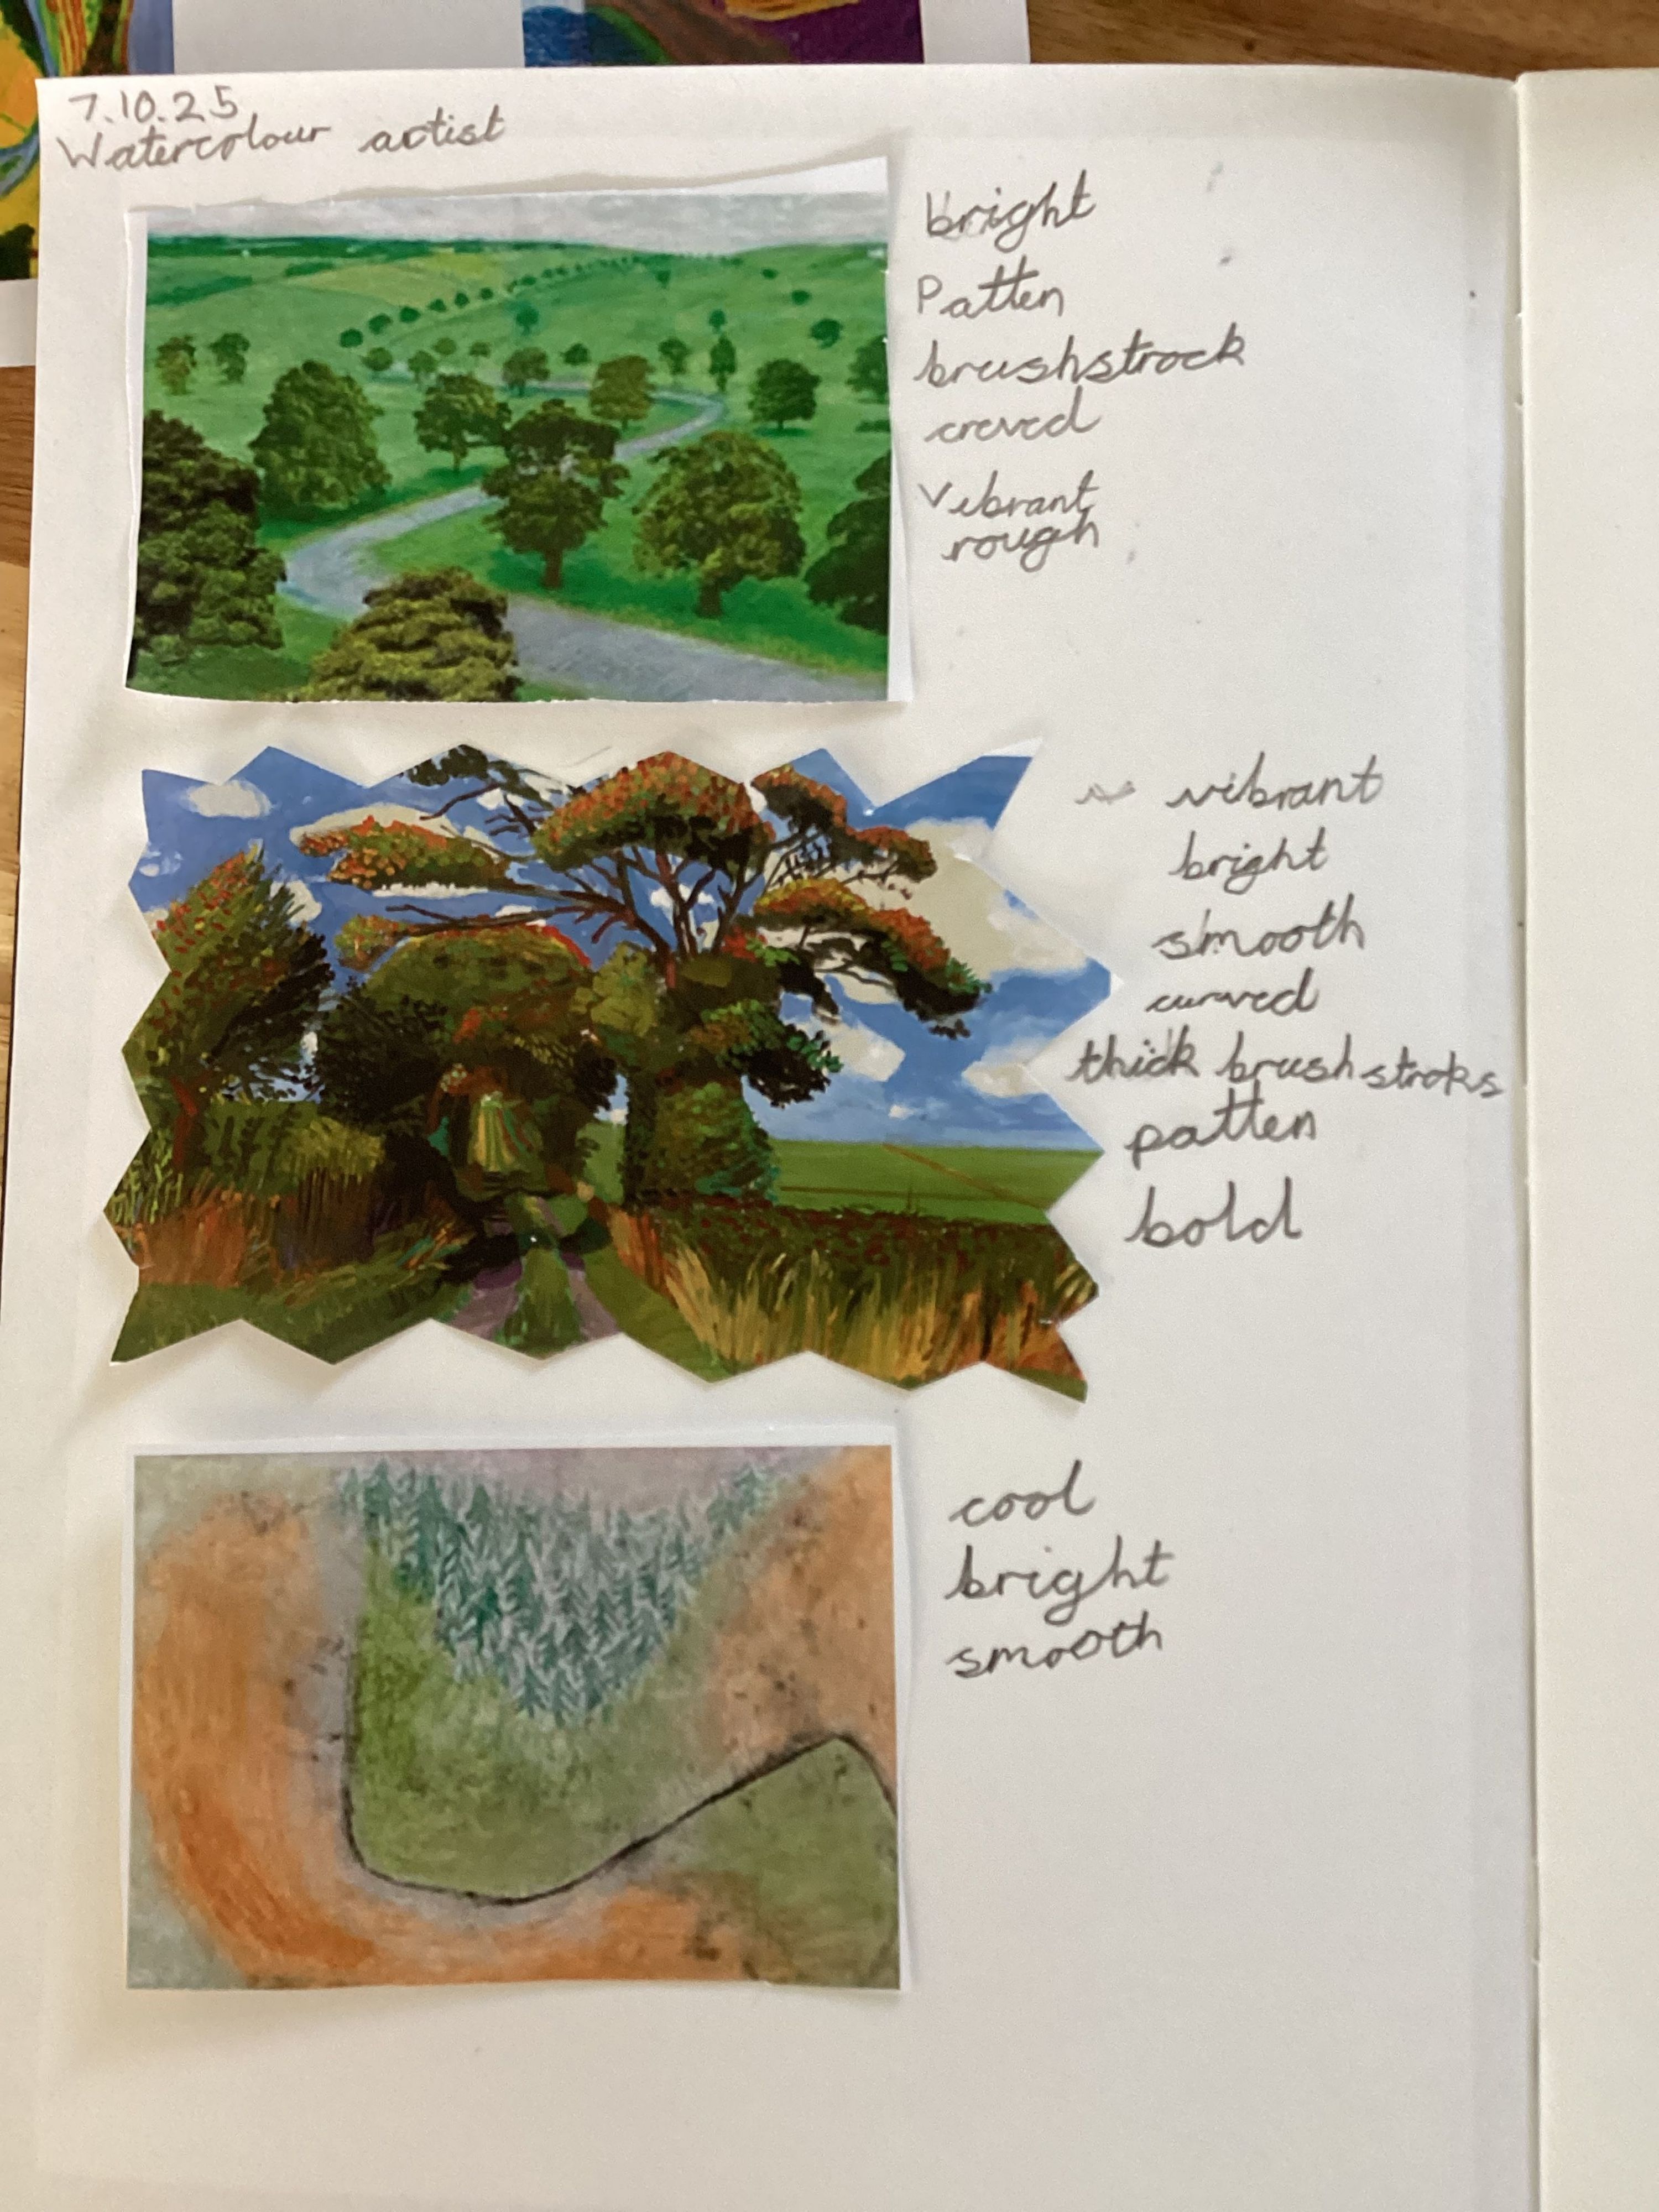 7.10.25
Watercolour artist
bright
Patten
brushstrock
creved
Vibrant
rough
vibrant
bright
smooth
curved
thick brush stroks
patten
bold
cool
bright
smooth